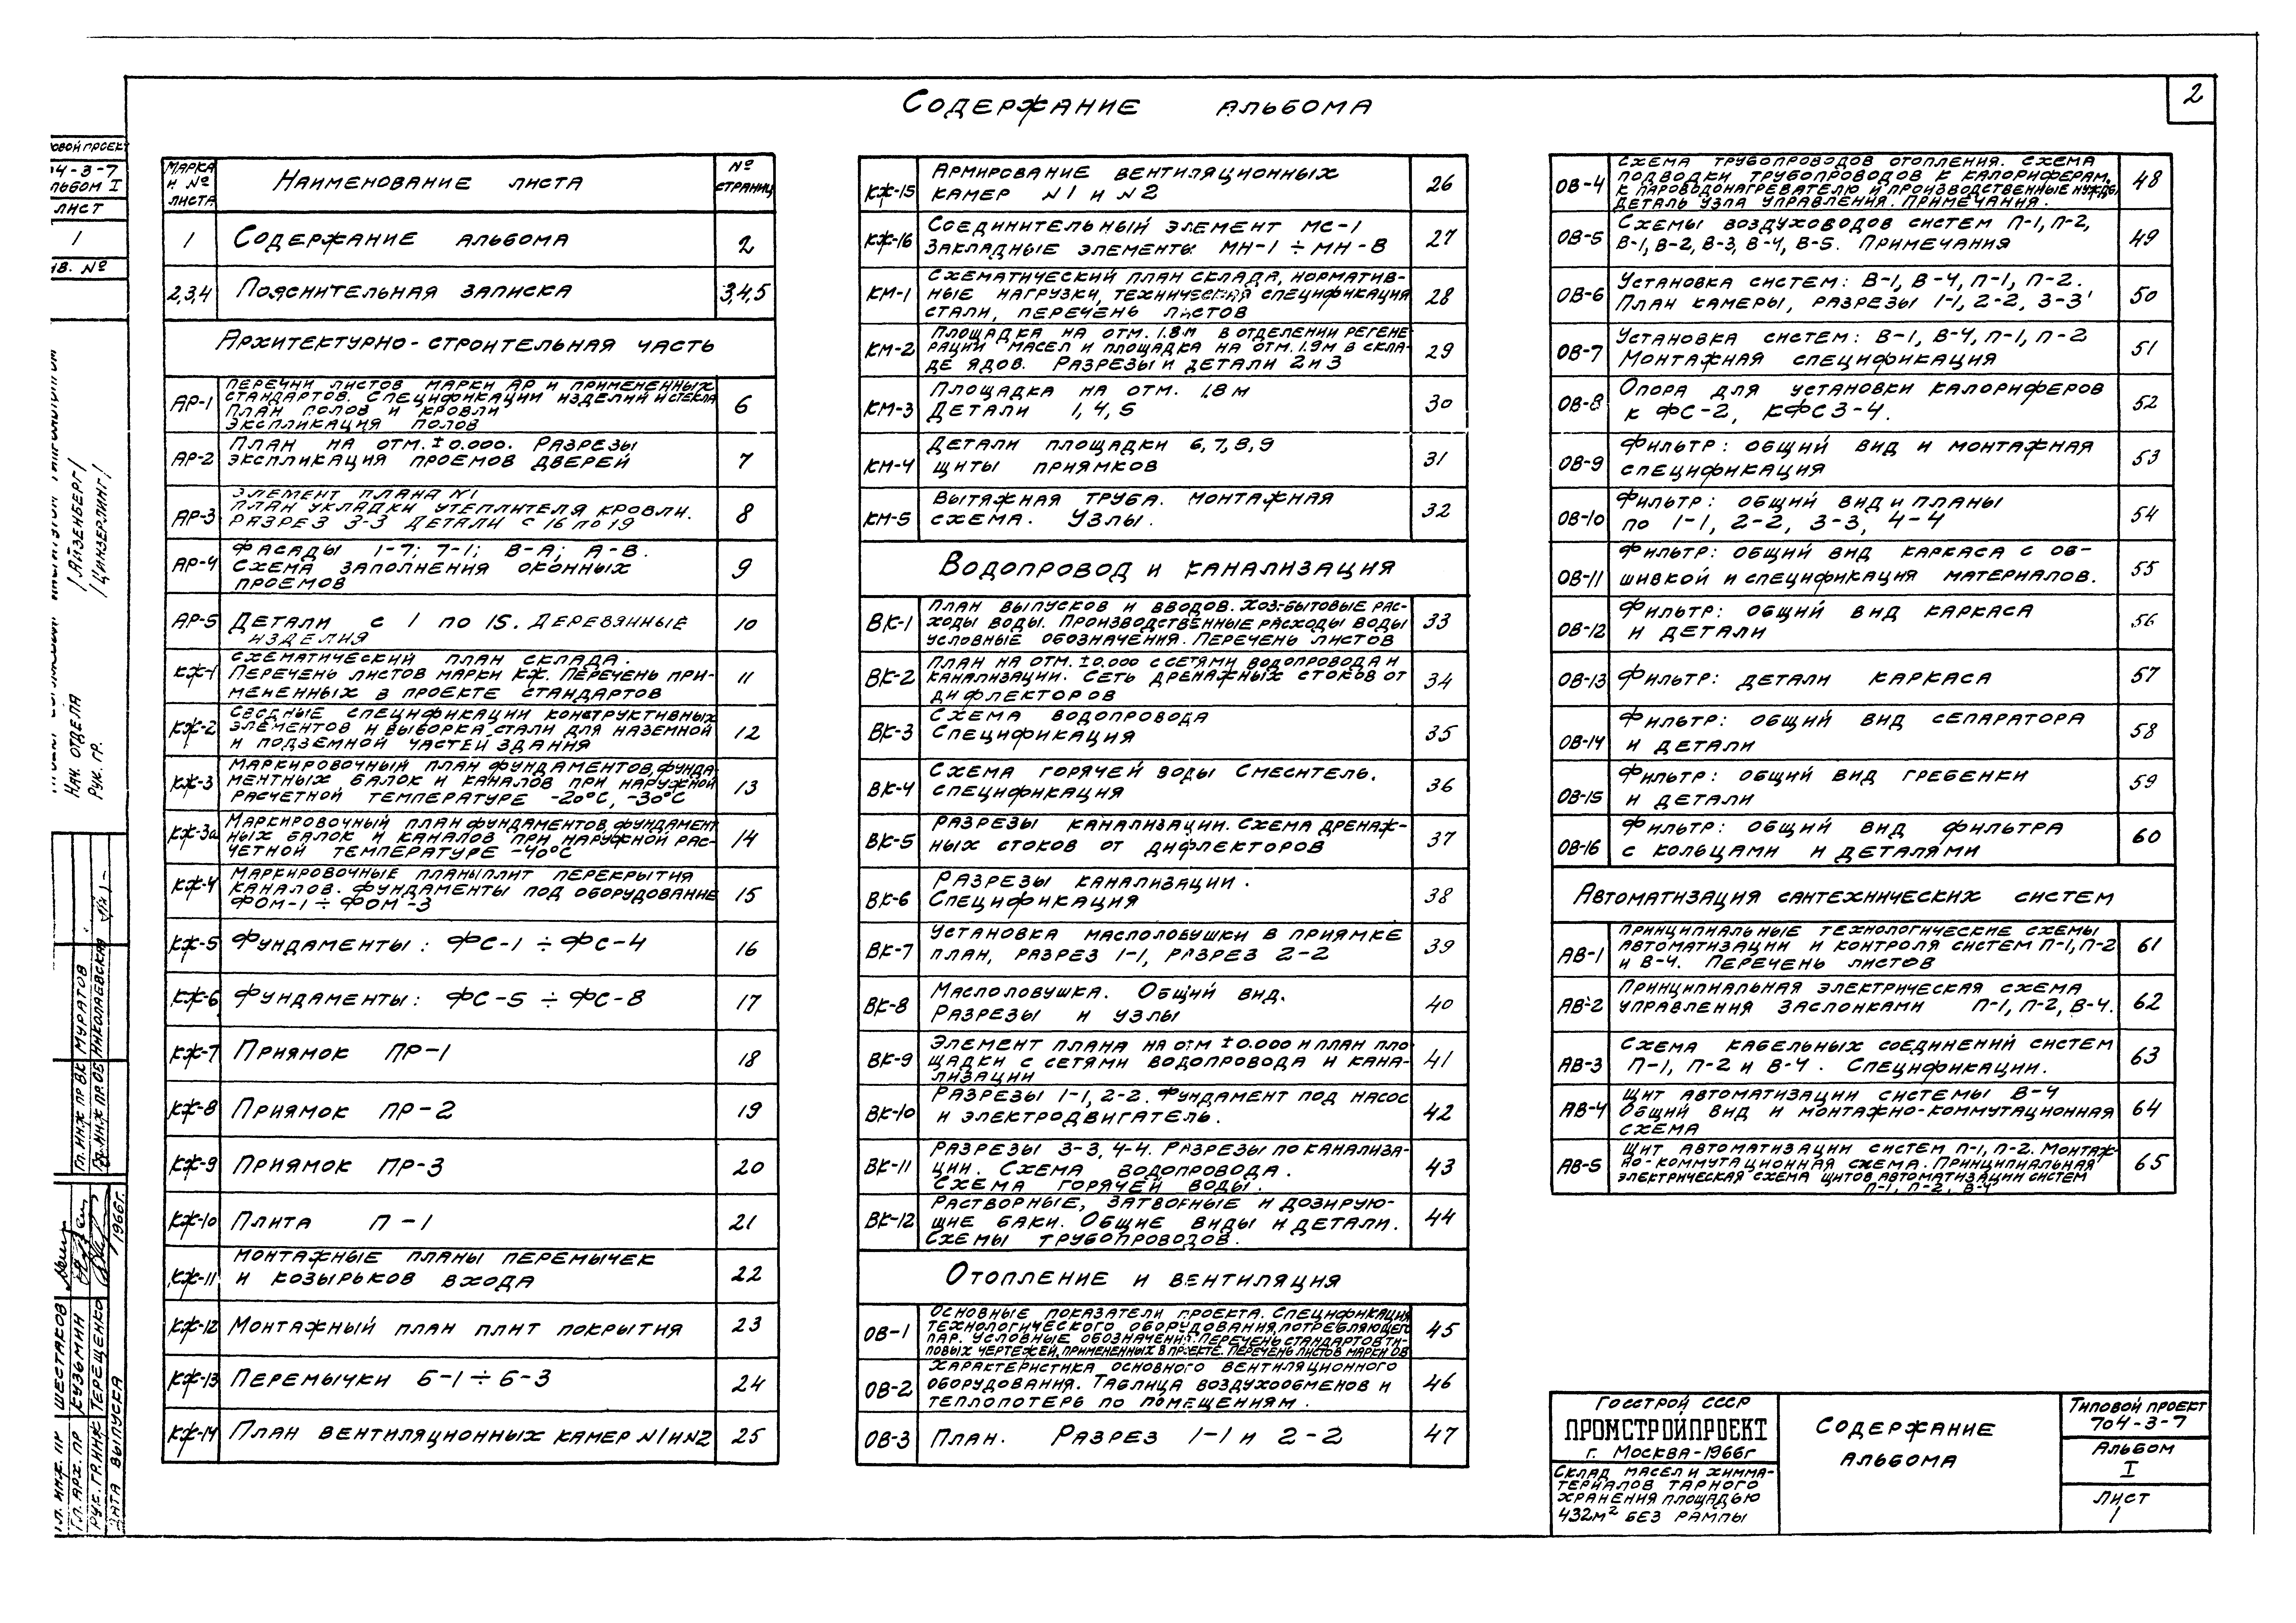 2
Содержание альбома
Марка и № листа | Наименование листа | № страниц
1 | Содержание альбома | 2
2,3,4 | Пояснительная записка | 3,4,5
Архитектурно-строительная часть
АР-1 | Перечни листов марки АР и примененных
стандартов. Спецификации изделий и стекла
План полов и кровли
Экспликация полов | 6
АР-2 | План на отм. ±0.000. Разрезы
Экспликация проемов дверей | 7
АР-3 | Элемент плана №1
План укладки утеплителя кровли.
Разрез 3-3 Детали с 16 по 19 | 8
АР-4 | Фасады 1-7; 7-1; В-А; А-В.
Схема заполнения оконных
проемов | 9
АР-5 | Детали с 1 по 15. Деревянные
изделия | 10
КЖ-1 | Схематический план склада.
Перечень листов марки КЖ. Перечень при-
мененных в проекте стандартов | 11
КЖ-2 | Сводные спецификации конструктивных
элементов и выборка стали для наземной
и подземной частей здания | 12
КЖ-3 | Маркировочный план фундаментов, фунда-
ментных балок и каналов при наружной
расчетной температуре -20°С, -30°С | 13
КЖ-3а | Маркировочный план фундаментов, фундамент
ных балок и каналов при наружной рас-
четной температуре -40°С | 14
КЖ-4 | Маркировочные планы плит перекрытия
каналов. Фундаменты под оборудование
ФОМ-1÷ФОМ-3 | 15
КЖ-5 | Фундаменты: ФС-1 ÷ ФС-4 | 16
КЖ-6 | Фундаменты: ФС-5 ÷ ФС-8 | 17
КЖ-7 | Приямок ПР-1 | 18
КЖ-8 | Приямок ПР-2 | 19
КЖ-9 | Приямок ПР-3 | 20
КЖ-10 | Плита П-1 | 21
КЖ-11 | Монтажные планы перемычек
и козырьков входа | 22
КЖ-12 | Монтажный план плит покрытия | 23
КЖ-13 | Перемычки Б-1÷Б-3 | 24
КЖ-14 | План вентиляционных камер №1 и №2 | 25
КЖ-15 | Армирование вентиляционных
камер №1 и №2 | 26
КЖ-16 | Соединительный элемент МС-1
Закладные элементы МН-1÷МН-8 | 27
КМ-1 | Схематический план склада, норматив-
ные нагрузки, техническая спецификация
стали, перечень листов | 28
КМ-2 | Площадка на отм. 1.8м в отделении регене
рации масел и площадка на отм. 1.9м в скла-
де ядов. Разрезы и детали 2 и 3 | 29
КМ-3 | Площадка на отм. 1.8м
Детали 1,4,5 | 30
КМ-4 | Детали площадки 6,7,8,9
щиты приямков | 31
КМ-5 | Вытяжная труба. Монтажная
схема. Узлы. | 32
Водопровод и канализация
ВК-1 | План выпусков и вводов. Хоз-бытовые рас-
ходы воды. Производственные расходы воды
условные обозначения. Перечень листов | 33
ВК-2 | План на отм. ±0.000 с сетями водопровода и
канализации. Сеть дренажных стоков от
дифлекторов | 34
ВК-3 | Схема водопровода
Спецификация | 35
ВК-4 | Схема горячей воды Смеситель.
спецификация | 36
ВК-5 | Разрезы канализации. Схема дренаж-
ных стоков от дифлекторов | 37
ВК-6 | Разрезы канализации.
Спецификация | 38
ВК-7 | Установка маслоловушки в приямке
план, разрез 1-1, разрез 2-2 | 39
ВК-8 | Маслоловушка. Общий вид.
Разрезы и узлы | 40
ВК-9 | Элемент плана на отм ±0.000 и план пло
щадки с сетями водопровода и кана-
лизации | 41
ВК-10 | Разрезы 1-1, 2-2. Фундамент под насос
и электродвигатель. | 42
ВК-11 | Разрезы 3-3, 4-4. Разрезы по канализа-
ции. Схема водопровода.
Схема горячей воды. | 43
ВК-12 | Растворные, затворные и дозирую-
щие баки. Общие виды и детали.
Схемы трубопроводов. | 44
Отопление и вентиляция
ОВ-1 | Основные показатели проекта. Спецификация
технологического оборудования, потребляющего
пар. Условные обозначения. Перечень стандартов ти-
повых чертежей, примененных в проекте. Перечень листов марки ОВ | 45
ОВ-2 | Характеристика основного вентиляционного
оборудования. Таблица воздухообменов и
теплопотерь по помещениям. | 46
ОВ-3 | План. Разрез 1-1 и 2-2 | 47
ОВ-4 | Схема трубопроводов отопления. Схема
подводки трубопроводов к калориферам,
к пароводонагревателю и производственные нужды
Деталь узла управления. Примечания. | 48
ОВ-5 | Схемы воздуховодов систем П-1, П-2,
В-1, В-2, В-3, В-4, В-5. Примечания | 49
ОВ-6 | Установка систем: В-1, В-4, П-1, П-2.
План камеры, разрезы 1-1, 2-2, 3-3 | 50
ОВ-7 | Установка систем: В-1, В-4, П-1, П-2
Монтажная спецификация | 51
ОВ-8 | Опора для установки калориферов
к ФС-2, КФС3-4. | 52
ОВ-9 | Фильтр: общий вид и монтажная
спецификация | 53
ОВ-10 | Фильтр: общий вид и планы
по 1-1, 2-2, 3-3, 4-4 | 54
ОВ-11 | Фильтр: общий вид каркаса с об-
шивкой и спецификация материалов. | 55
ОВ-12 | Фильтр: общий вид каркаса
и детали | 56
ОВ-13 | Фильтр: детали каркаса | 57
ОВ-14 | Фильтр: общий вид сепаратора
и детали | 58
ОВ-15 | Фильтр: общий вид гребенки
и детали | 59
ОВ-16 | Фильтр: общий вид фильтра
с кольцами и деталями | 60
Автоматизация сантехнических систем
АВ-1 | Принципиальные технологические схемы
автоматизации и контроля систем П-1, П-2
и В-4. Перечень листов | 61
АВ-2 | Принципиальная электрическая схема
управления заслонками П-1, П-2, В-4. | 62
АВ-3 | Схема кабельных соединений систем
П-1, П-2 и В-4. Спецификации. | 63
АВ-4 | Щит автоматизации системы В-4
Общий вид и монтажно-коммутационная
схема | 64
АВ-5 | Щит автоматизации систем П-1, П-2. Монтаж-
но-коммутационная схема. Принципиальная
электрическая схема щитов автоматизации систем
П-1, П-2, В-4 | 65
Госстрой СССР
ПРОМСТРОЙПРОЕКТ
г. Москва-1966г
Склад масел и химма-
териалов тарного
хранения площадью
432м² без рампы
Содержание
альбома
Типовой проект
704-3-7
Альбом
I
Лист
1
овой проект
04-3-7
льбом I
лист
1
нв. №
Нач. отдела /Айзенберг/
Рук. гр. /Цинзерлинг/
Гл. инж пр ВК Муратов
Гл. инж пр. ОВ Николаевская
Гл. инж. пр Шестаков
Гл. арх. пр Кузьмин
Рук. гр. инж Терещенко
Дата выпуска 1966г.